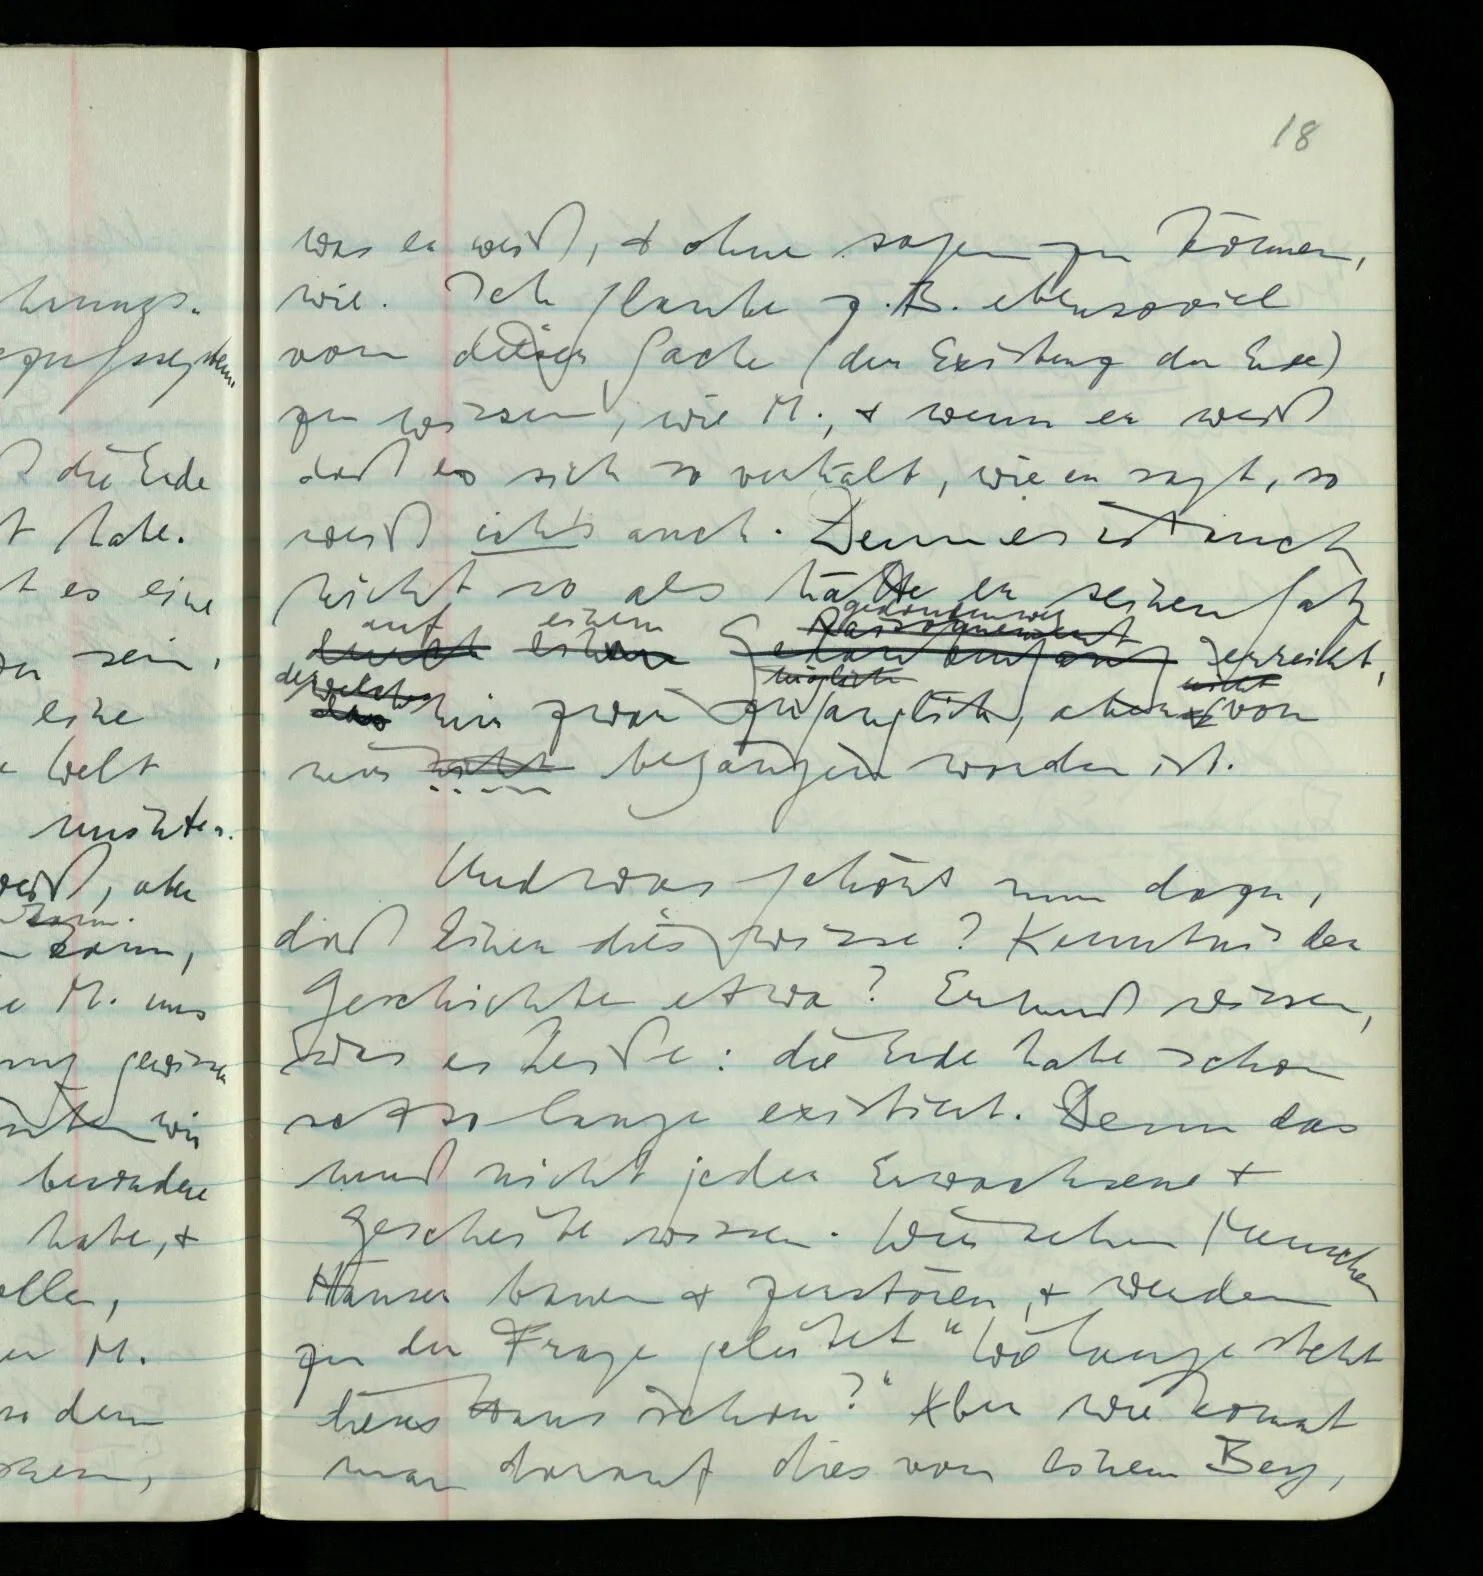 hungs-
egriffssystem
ß die Erde
t habe.
t es eine
sein,
eine
Welt
müßten.
weiß, aber
kann.
kann,
M. uns
gewissen
wir
besondere
habe, +
ollen,
er M.
so dem
18
was er weiß, + ohne sagen zu können,
wie. Ich glaube z.B. ebensoviel
von dieser Sache (der Existenz der Erde)
zu wissen, wie M., + wenn er weiß
daß es sich so verhält, wie er sagt, so
weiß ich's auch. Denn es ist auch
nicht so als hätte er seinen Satz
auf einem gedankenweg
Raisonnement
durch einen Gedankengang erreicht,
der welcher möglich nicht
das mir zwar zugänglich, aber von
mir nicht begangen worden ist.
Und was gehört nun dazu,
daß Einer dies wisse? Kenntnis der
Geschichte etwa? Er muß wissen,
was es heiße: die Erde habe schon
seit so lange existiert. Denn das
muß nicht jeder Erwachsene +
Gescheite wissen. Wir sehen Menschen
Häuser bauen + zerstören, + werden
zu der Frage geleitet "Wie lange steht
dieses Haus schon?" Aber wie kommt
man darauf dies von einem Berg,